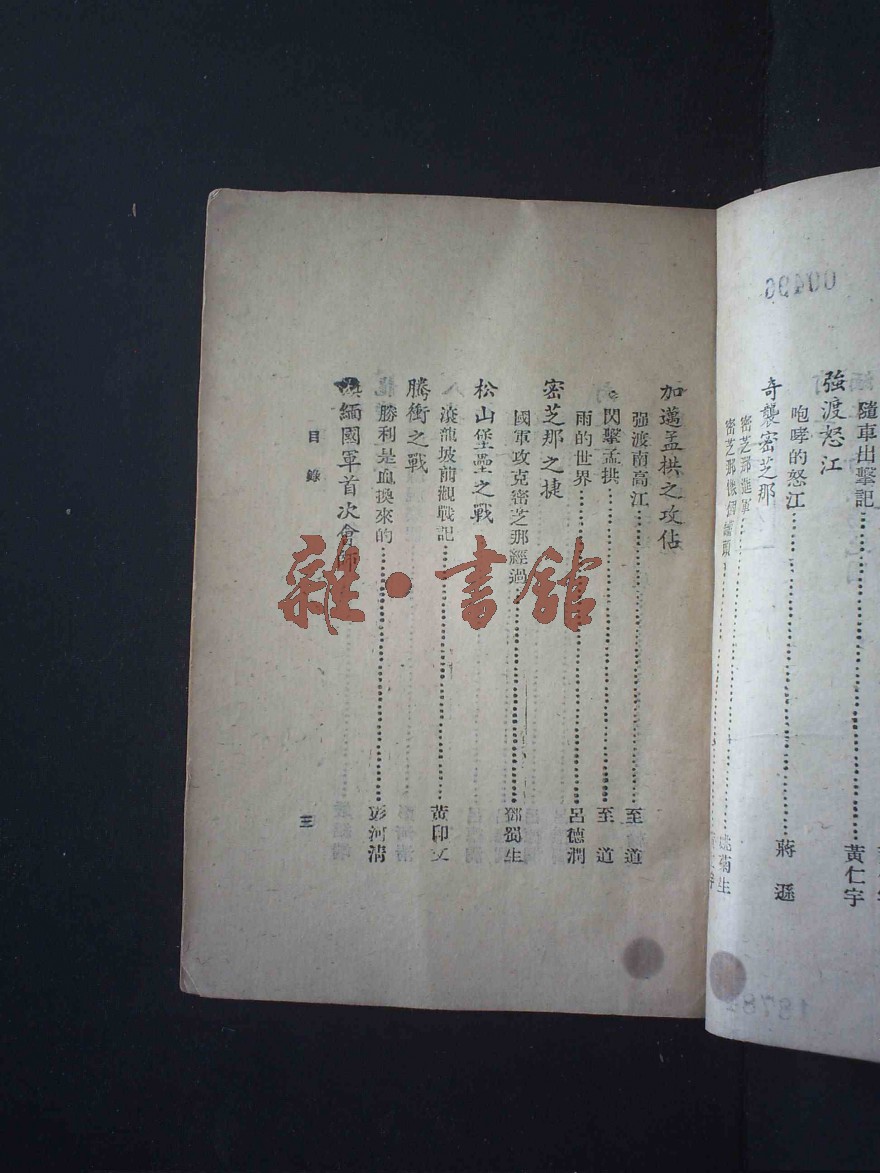 隨車出擊記 黃仁宇
強渡怒江
咆哮的怒江 蔣遜
奇襲密芝那
密芝那進軍
密芝那 菊生
加邁孟拱之攻佔
强渡南高江 至道
閃擊孟拱 至道
雨的世界 呂德潤
密芝那之捷
國軍攻克密芝那經過 鄧蜀生
松山堡壘之戰
滾龍坡前觀戰記 黃印文
騰衝之戰
勝利是血換來的 彭河清
緬國軍首次會師
目錄
三
00496
1878
雜·書館